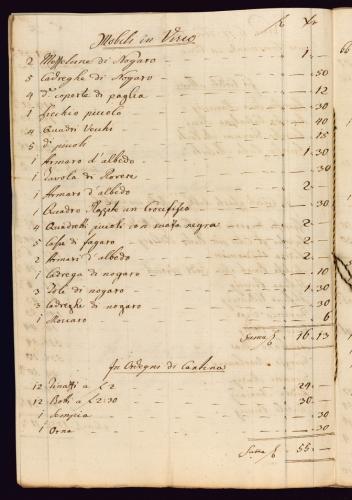 fl Xr
Mobili in Viceo
2 Mezzelune di Nogaro 1. –
5 Cadreghe di Nogaro – . 50
4 d.e coperte di paglia – . 12
1 Secchio piccolo – . 30
4 Quadri Vechi – . 40
5 d.i picoli – . 15
1 Armaro d'albedo 1. 30
1 Tavola di Rovere – . 30
1 Armaro d'albedo 2. –
1 Quadro, un Crocifisso – . 30
4 Quadretti picoli con negra 2. –
5 di fagaro 2. –
2 Armari d'albedo 2. –
1 Cadrega di nogaro – . 10
3 di nogaro 1. 30
3 Cadreghe di nogaro – . 30
1 – . 6
Suma fl 16. 13
In Ordegni di Cantina
12 Tinazzi a £ 2 24. –
12 Boti a £ 2:30 30. –
1 – . 30
1 Orna – . 30
Suma fl 55. –
66